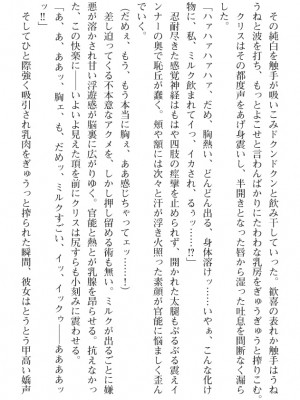 その純白を触手が吸いこみドクンドクンと飲み干していった。歓喜の表れか触手はうね
うねと波を打ち、もっとよこせと言わんばかりにたわわな乳房をぎゅうぎゅうと搾りこむ。
クリスはその都度声をあげ身震いし、半開きとなった唇から湿った吐息を間断なく漏ら
す。
「ハァハァハァハァ、だめ、胸熱い、どんどん出る、身体溶けッ……いやぁ、こんな化け
物に、私、ミルク飲まれてイッ、イカされ、るぅーッ!?」
忍耐尽きた感覚神経はもはや四肢の痙攣を止められず、開かれた太腿もぶるぶる震えイ
ンナーの奥で恥丘が蠢く。頬や額には次々と汗が浮き火照った素顔が官能に悩ましく歪ん
でいく。
(だめぇ、もう、もう本当に胸ぇ、ああ感じちゃってェッ……!)
差し迫ってくる不本意なアクメを、しかし押し留める術も無い。ミルクが出るごとに嫌
悪が溶かされ甘い浮遊感が脳裏に広がりゆく。官能と熱とが乳腺を昂らせる。抗えなかっ
た、この快楽に――いよいよ見えた頂を前にクリスは尻すらも小刻みに震わせる。
「あ、ああッ、胸ェ、も、だめッ、ミルクすごい、イッ、イックゥ――ああああッ
ッ!!」
そしてひと際強く吸引され乳肉をぎゅうっと搾られた瞬間、彼女はとうとう甲高い嬌声